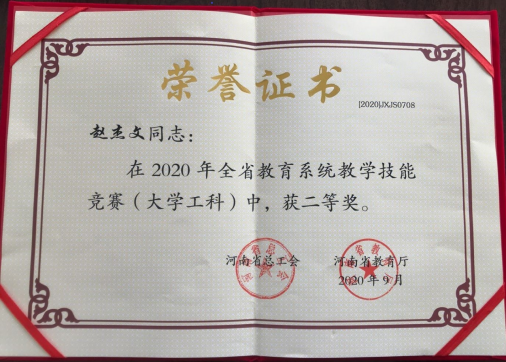 荣誉证书
[2020]JXJS0708
赵杰文同志：
在2020年全省教育系统教学技能
竞赛（大学工科）中，获二等奖。
河南省总工会 河南省教育厅
2020年9月